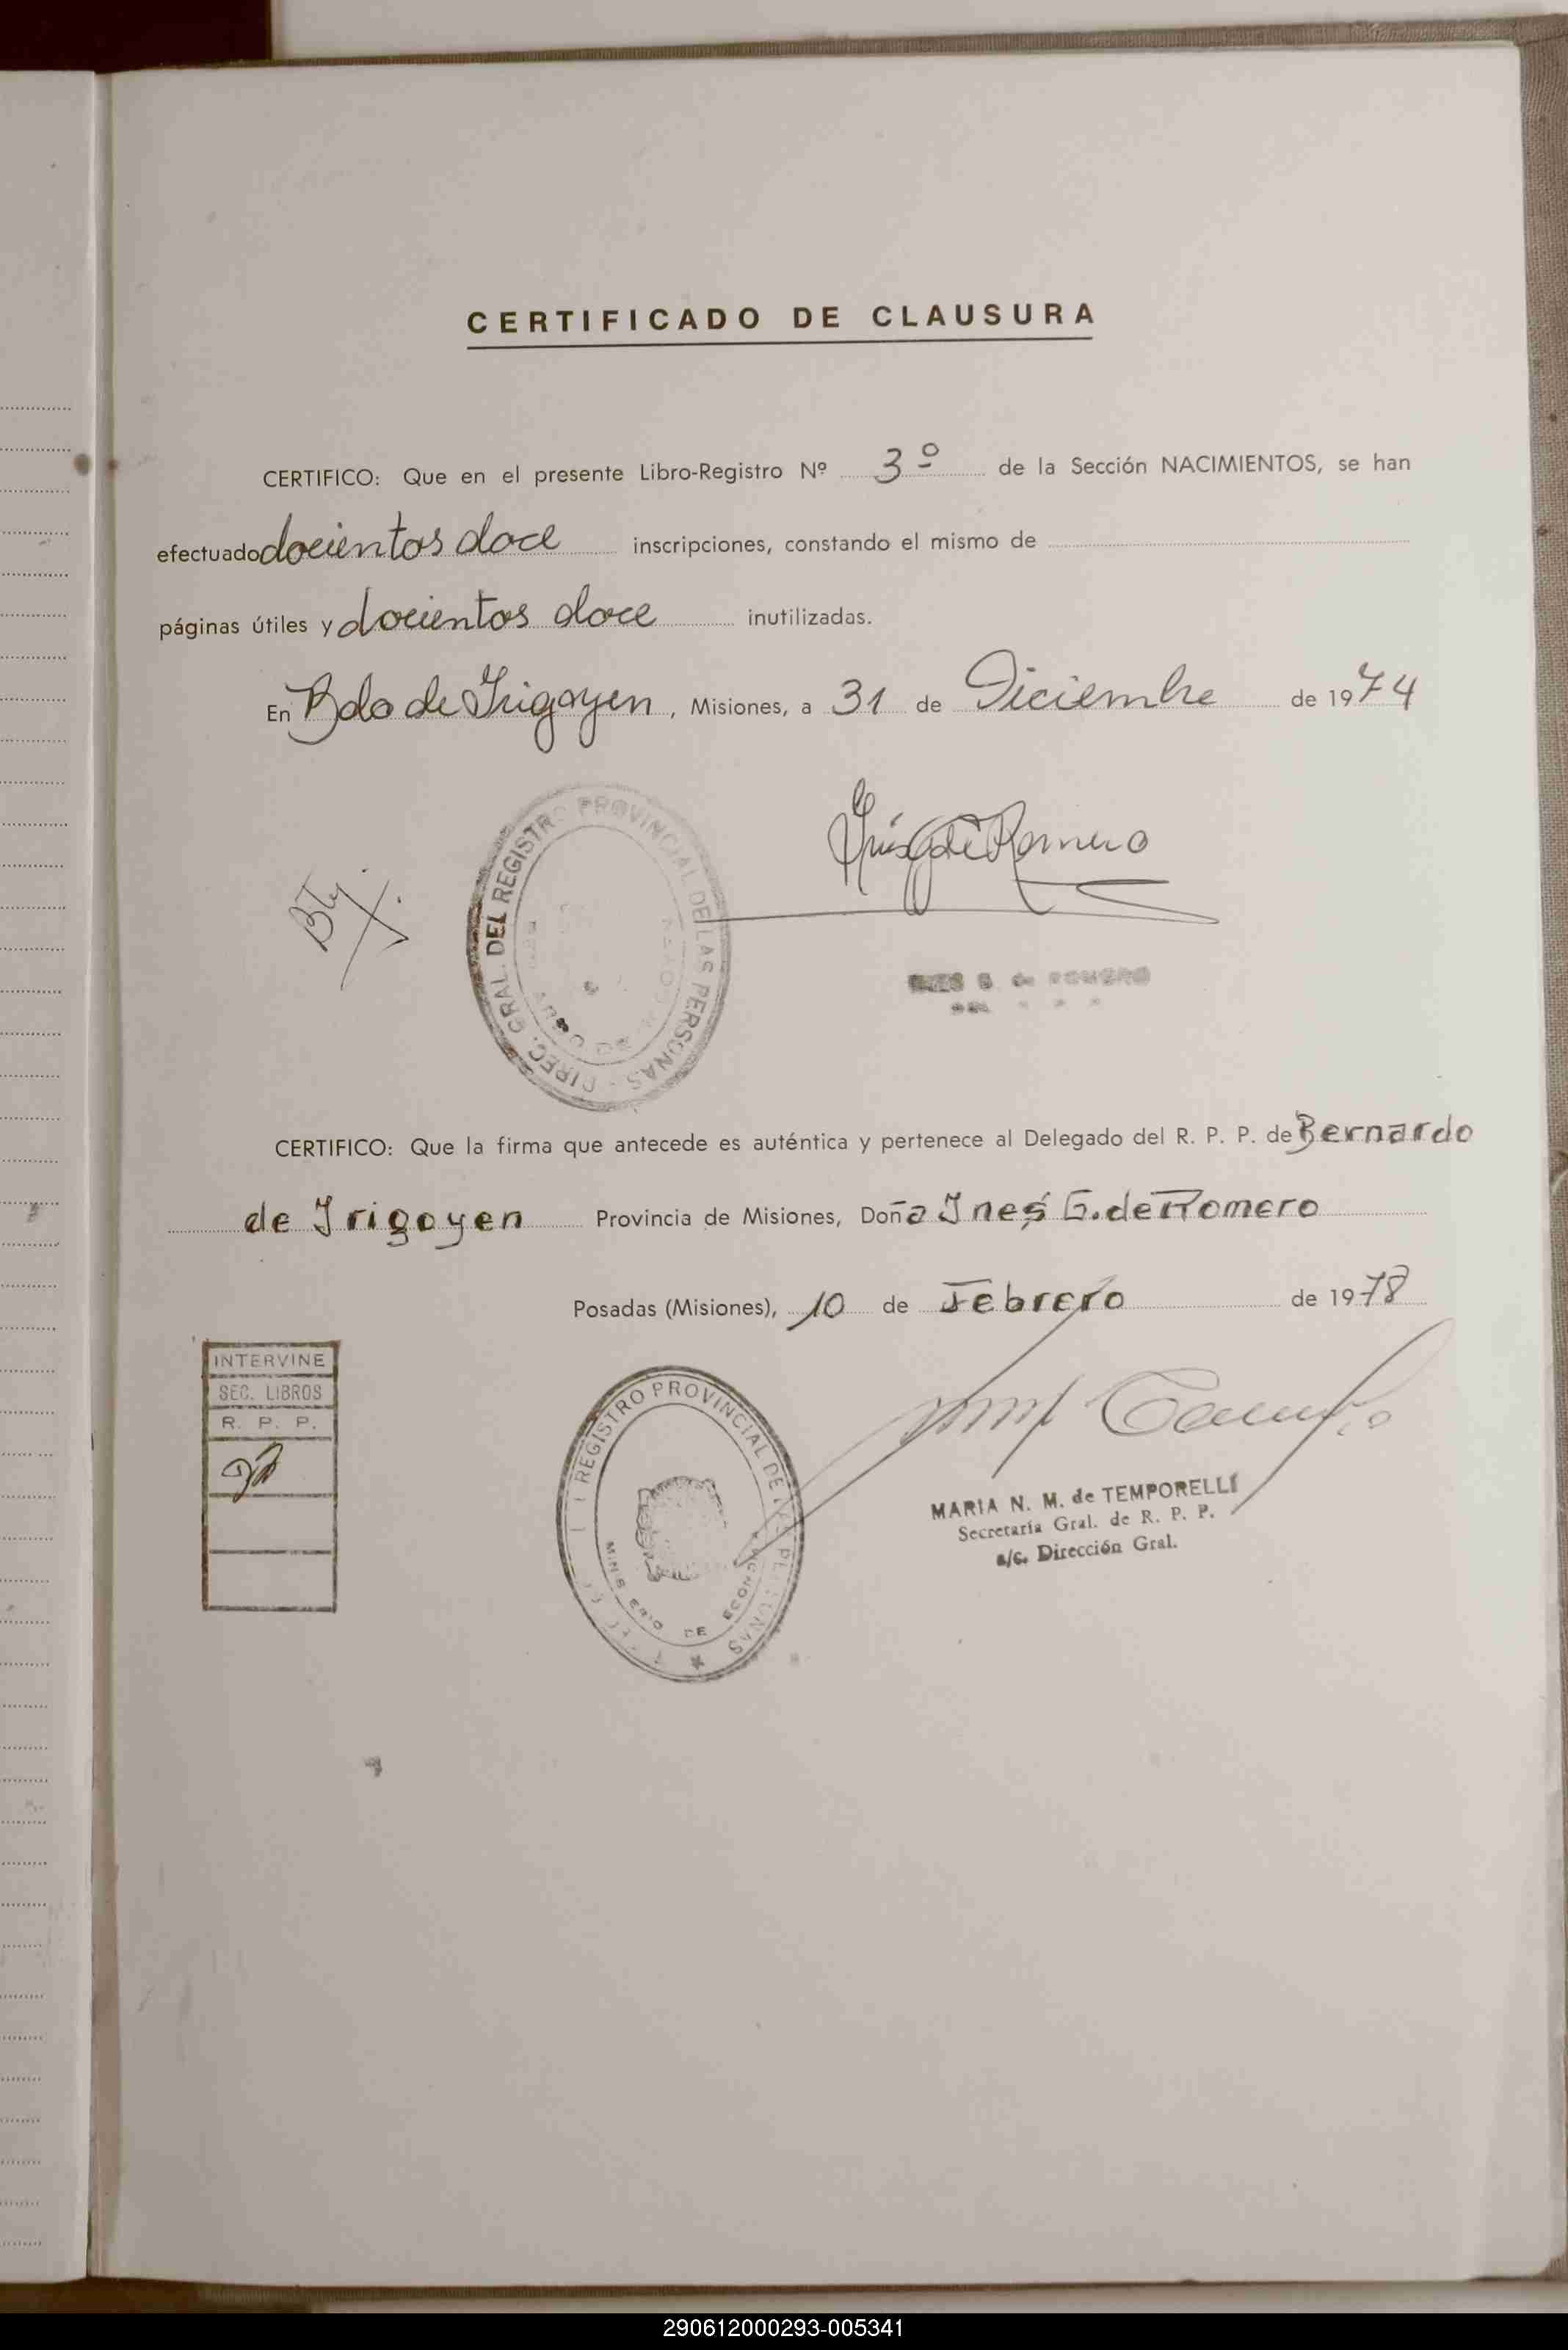 CERTIFICADO DE CLAUSURA
CERTIFICO: Que en el presente Libro-Registro Nº 3º de la Sección NACIMIENTOS, se han
efectuado docientos doce inscripciones, constando el mismo de
páginas útiles y docientos doce inutilizadas.
En Bdo de Irigoyen, Misiones, a 31 de Diciembre de 1974
DIREC. GRAL. DEL REGISTRO PROVINCIAL DE LAS PERSONAS
de Romero
de ROMERO
CERTIFICO: Que la firma que antecede es auténtica y pertenece al Delegado del R. P. P. de Bernardo
de Irigoyen Provincia de Misiones, Doña Inés G. de Romero
Posadas (Misiones), 10 de Febrero de 1978
INTERVINE
SEC. LIBROS
R. P. P.
REGISTRO PROVINCIAL DE
DE ECONOMIA
MARIA N. M. de TEMPORELLI
Secretaría Gral. de R. P. P.
a/c. Dirección Gral.
290612000293-005341